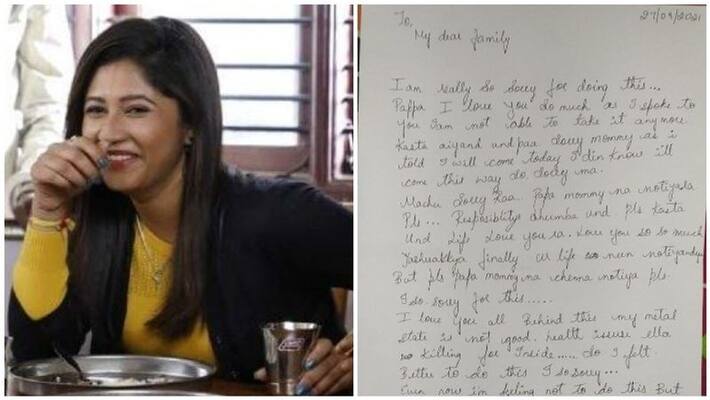 27/09/2021
To,
My dear family
I am really so sorry for doing this...
Pappa I love you so much as I spoke to
you I am not able to take it anymore.
Kasta aiyand und paa sorry mommy as i
told I will come today I din know i'll
come this way so, sorry ma.
Machu sorry Raa.. Papa mommy na
Pls... Resposiblity dhumba und pls Kasta
Und life love you ra. love you so so much
finally ur life nun
But pls papa mommy na chenna notiya pls.
I so sorry for this.....
I love you all Behind this my metal
state is not good. health issuse ella
killing for Inside...... So I felt
Better to do this I so sorry...
Even now i'm feling not to do this But